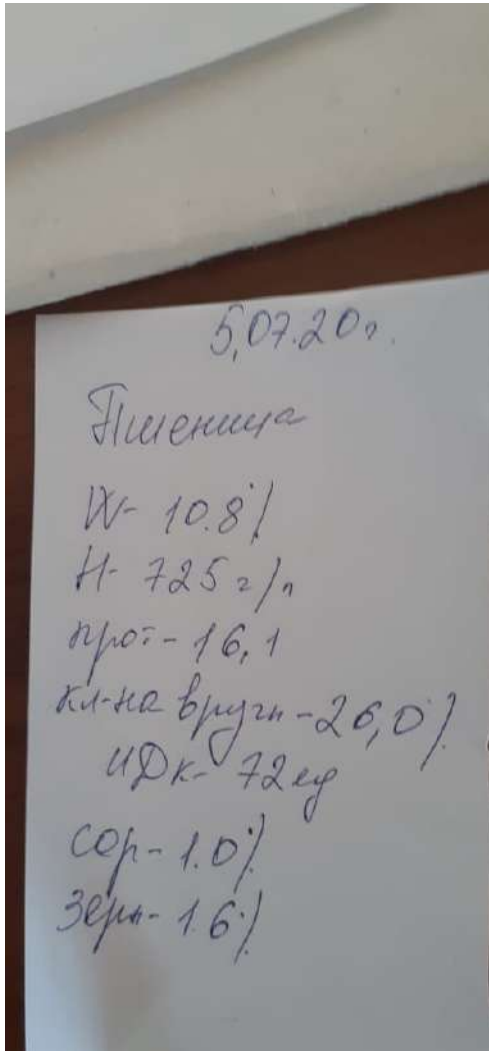 5,07.20г.
Пшеница
W- 10.8%
Н- 725 г/л
прот- 16,1
кл-на вручн - 26,0%
ИДК- 72 ед
Сор- 1.0%
Зерн- 1.6%